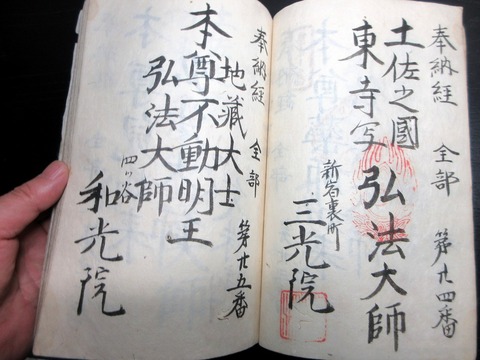 奉納経 全部 第廿四番
土佐之國
東寺写 弘法大師
三光院
奉納経 全部 第廿五番
地藏大士
本尊不動明王
弘法大師
四ツ谷
和光院